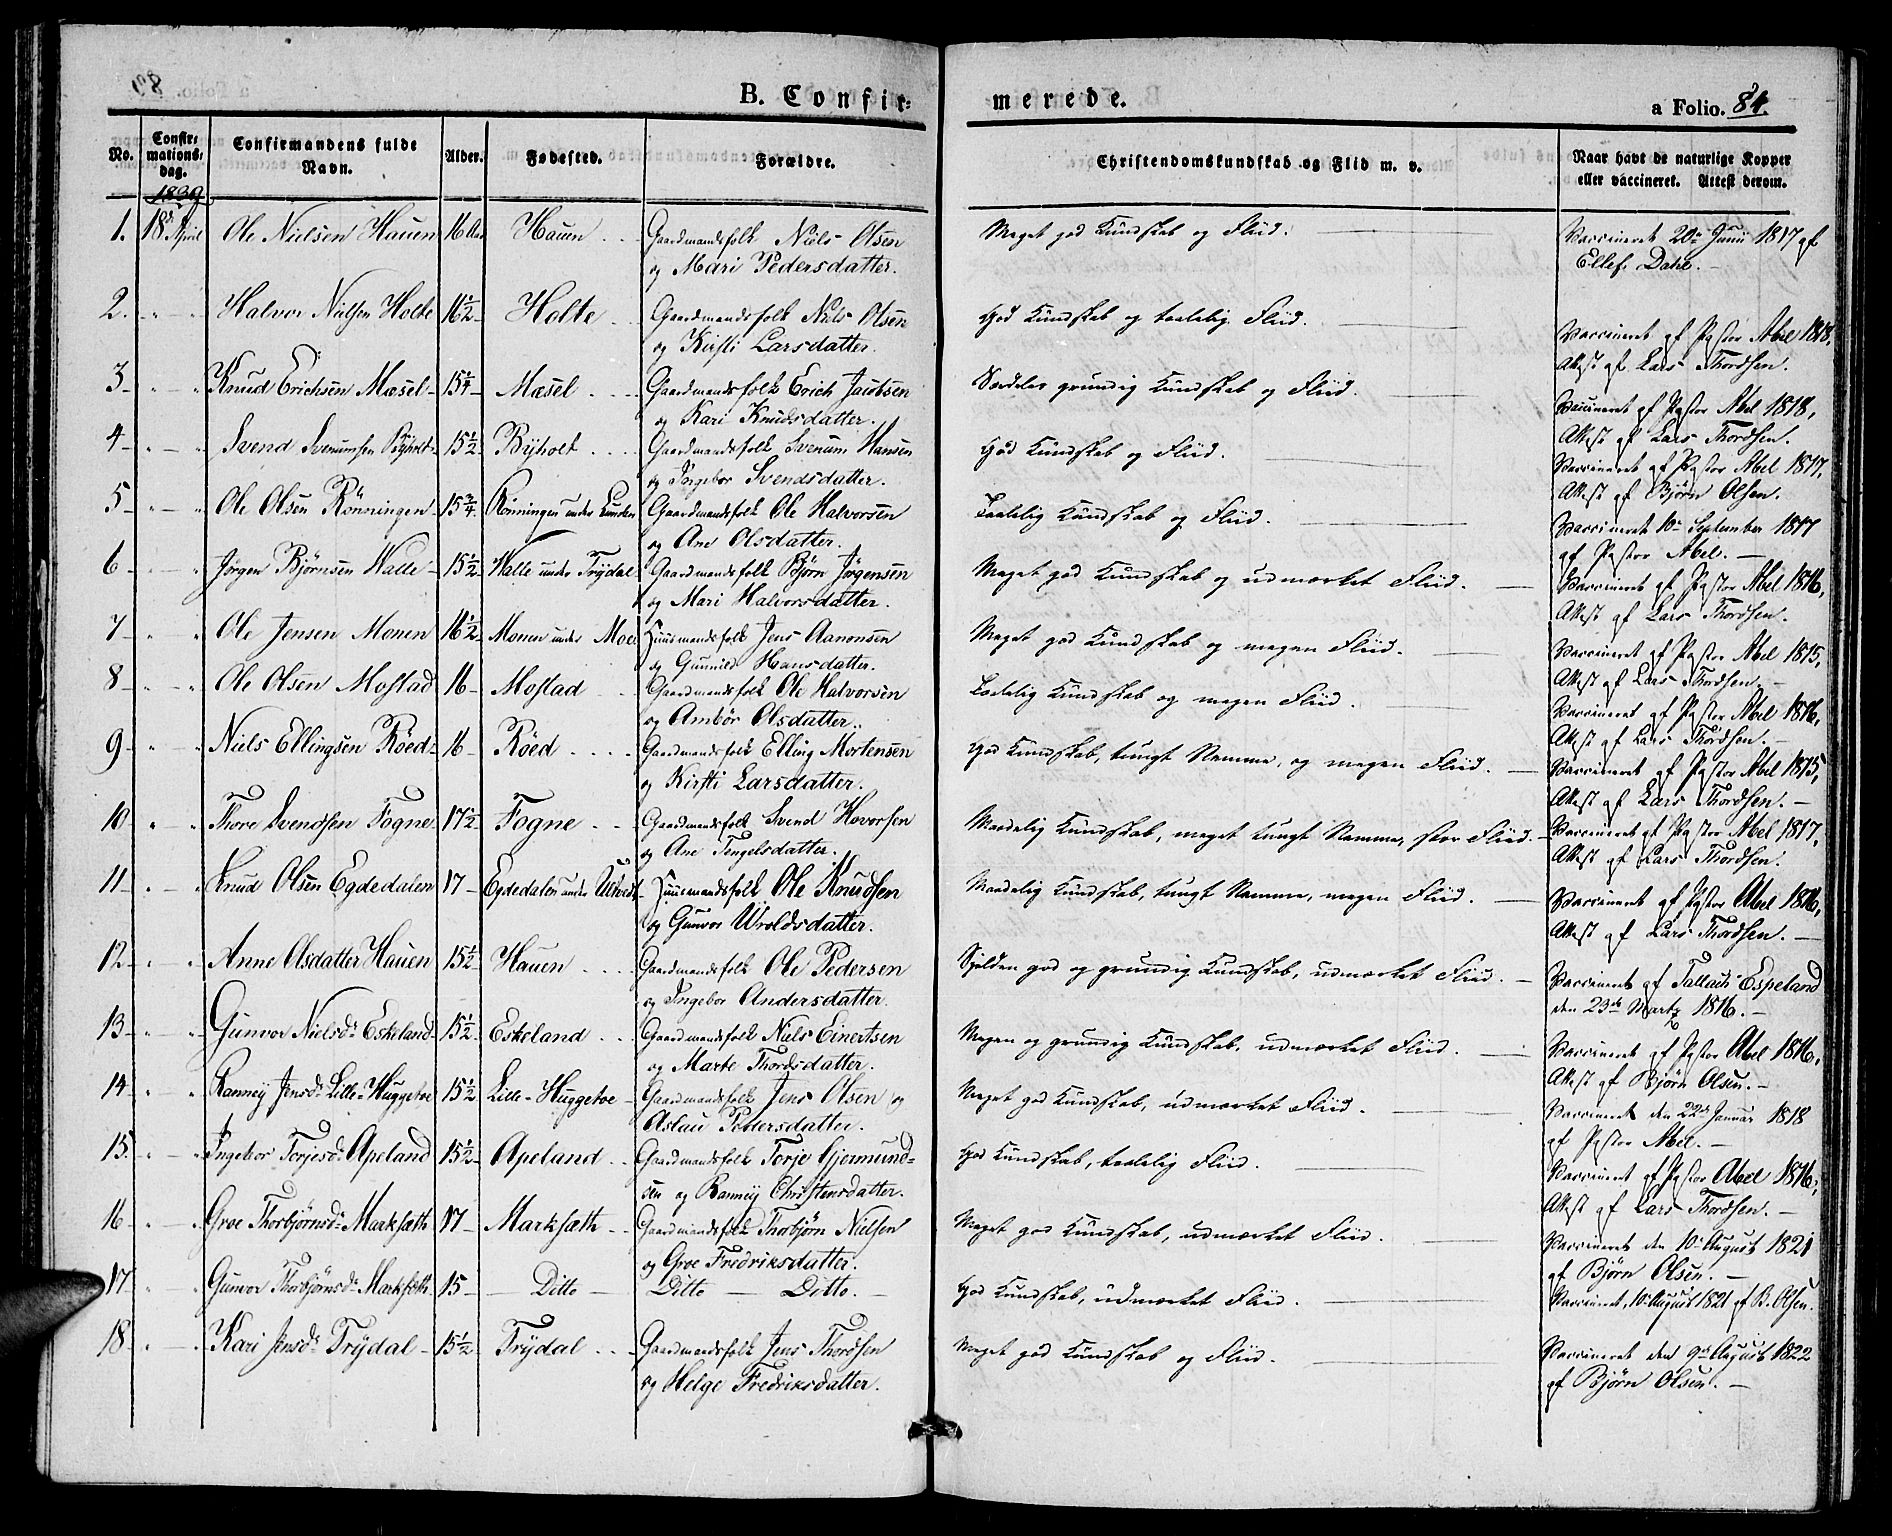 B. Confir=
merede.
a Folio. 84.
No.
Confir=
mations=
dag.
Confirmandens fulde
Navn.
Alder.
Fødested.
Forældre.
Christendomskundskab og Flid m. v.
Naar havt de naturlige Kopper
eller vaccineret. Attest derom.
1839
1. 18de April Ole Nielsen Hauen 16 Hauen Gaardmandsfolk Niels Olsen Meget god Kundskab og Fliid. Vaccineret 20de Junii 1817 af
og Mari Pedersdatter. Ellef Dahl.
2. Halvor Nielsen Holte 16½ Holte Gaardmandsfolk Niels Olsen God Kundskab og taalelig Fliid. Vaccineret af Pastor Abel 1818,
og Kirsti Larsdatter. Attest af Lars Thordsen.
3 Knud Erichsen Mæsel 15¼ Mæsel Gaardmandsfolk Erich Jacobsen Særdeles grundig Kundskab og Fliid. Vaccineret af Pastor Abel 1818,
og Kari Knudsdatter. Attest af Lars Thordsen.
4 Svend Svenumsen Byholt 15½ Byholt Gaardmandsfolk Svenum Hansen God Kundskab og Fliid. Vaccineret af Pastor Abel 1817,
og Ingebor Svendsdatter. Attest af Bjørn Olsen.
5 Ole Olsen Rönningen 15¾ Rönningen under Lunden Gaardmandsfolk Ole Halvorsen Taalelig Kundskab og Fliid. Vaccineret 10de September 1817
og Ane Olsdatter. af Pastor Abel.
6 Jørgen Bjørnsen Halle 15½ Halle under Trydal Gaardmandsfolk Bjørn Jørgensen Meget god Kundskab og udmærket Fliid. Vaccineret af Pastor Abel 1816,
og Mari Halvorsdatter. Attest af Lars Thordsen.
7 Ole Jensen Monen 16½ Monen under Moe Huusmandsfolk Jens Aanonsen Meget god Kundskab og megen Fliid. Vaccineret af Pastor Abel 1815,
og Gunnild Hansdatter. Attest af Lars Thordsen.
8 Ole Olsen Mostad 16 Mostad Gaardmandsfolk Ole Halvorsen Taalelig Kundskab og megen Fliid. Vaccineret af Pastor Abel 1816,
og Ambör Olsdatter. Attest af Lars Thordsen.
9 Niels Ellingsen Röed 16 Röed Gaardmandsfolk Elling Mortensen God Kundskab, tungt Nemme, og megen Fliid. Vaccineret af Pastor Abel 1815,
og Kirsti Larsdatter. Attest af Lars Thordsen.
10 Thore Svendsen Fogne 17½ Fogne Gaardmandsfolk Svend Hovorsen Maadelig Kundskab, meget tungt Nemme, stor Fliid. Vaccineret af Pastor Abel 1817,
og Ane Tengelsdatter. Attest af Lars Thordsen.
11 Knud Olsen Egdedalen 17 Egdedalen under Ulltvedt Huusmandsfolk Ole Knudsen Maadelig Kundskab, tungt Nemme, megen Fliid. Vaccineret af Pastor Abel 1816,
og Gunvor Wroldsdatter. Attest af Lars Thordsen.
12 Anne Olsdatter Hauen 15½ Hauen Gaardmandsfolk Ole Pedersen Sjelden god og grundig Kundskab, udmærket Fliid. Vaccineret af Tallach Espeland
og Ingebor Andersdatter. den 23de Marty 1816.
13 Gunvor Nielsdr Eskeland 15½ Eskeland Gaardmandsfolk Niels Einertsen Megen og grundig Kundskab, udmærket Fliid. Vaccineret af Pastor Abel 1816,
og Marte Thordsdatter. Attest af Bjørn Olsen.
14 Ranney Jensdr Lille-Huggetve 15½ Lille-Huggetve Gaardmandsfolk Jens Olsen og Meget god Kundskab, udmærket Fliid. Vaccineret den 22de Januar 1818
Aslau Pettersdatter. af Pastor Abel.
15. Ingebor Torjesdr Apeland 15½ Apeland Gaardmandsfolk Torje Gjermund= God Kundskab, taalelig Fliid. Vaccineret af Pastor Abel 1816,
sen og Ranney Christensdatter. Attest af Lars Thordsen.
16 Groe Thorbjørnsdr Marksæth 17 Marksæth Gaardmandsfolk Thorbjørn Nielsen Meget god Kundskab, udmærket Fliid. Vaccineret den 10de August 1821
og Groe Fredriksdatter. af Bjørn Olsen.
17 Gunvor Thorbjørnsdr Marksæth 15 Ditto Ditto Ditto. God Kundskab, udmærket Fliid. Vaccineret 10de August 1821 af B. Olsen.
18 Kari Jensdr Trydal 15½ Trydal Gaardmandsfolk Jens Thordsen Meget god Kundskab og Fliid. Vaccineret den 9de August 1822
og Helge Fredriksdatter. af Bjørn Olsen.